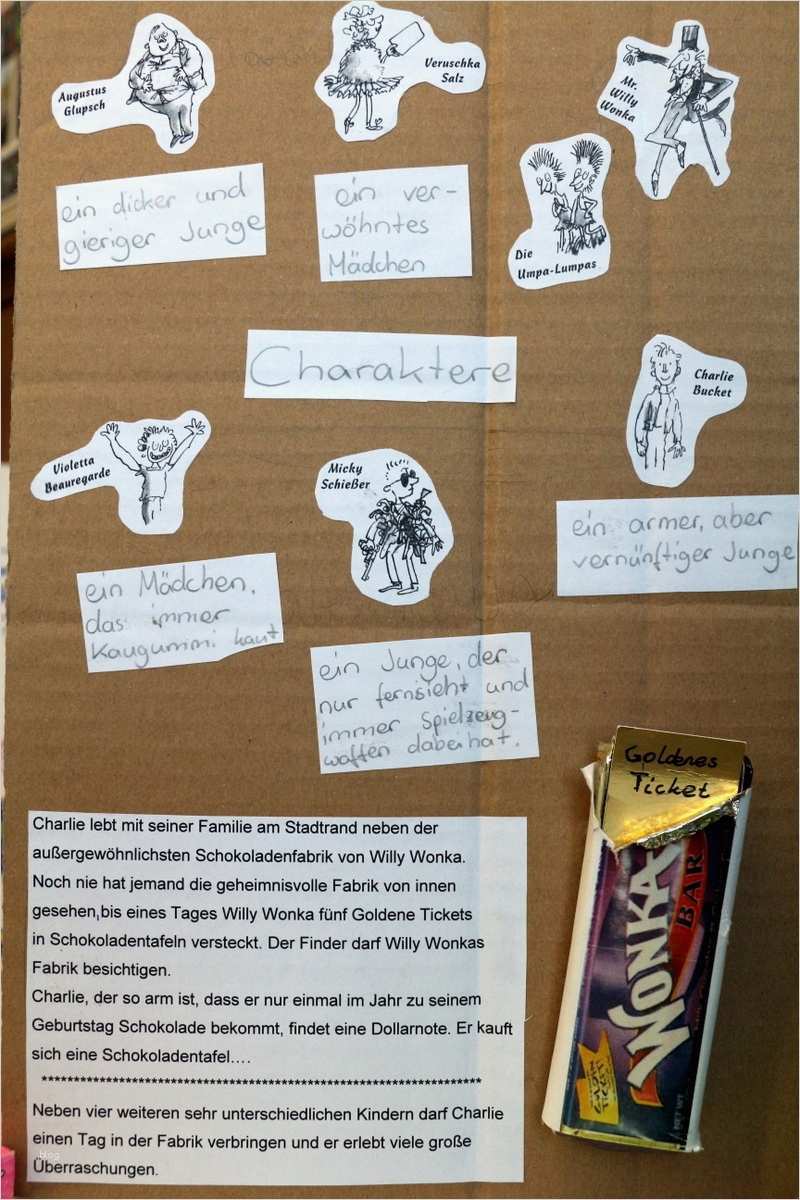 Augustus
Glupsch
Veruschka
Salz
Mr.
Willy
Wonka
ein dicker und
gieriger Junge
ein ver-
wöhntes
Mädchen
Die
Umpa-Lumpas
Charaktere
Charlie
Bucket
Violetta
Beauregarde
Micky
Schießer
ein armer, aber
vernünftiger Junge
ein Mädchen,
das immer
Kaugummi kaut
ein Junge, der
nur fernsieht und
immer Spielzeug-
waffen dabei hat.
Goldenes
Ticket
WONKA
BAR
GOLDEN
TICKET
NET WT
Charlie lebt mit seiner Familie am Stadtrand neben der
außergewöhnlichsten Schokoladenfabrik von Willy Wonka.
Noch nie hat jemand die geheimnisvolle Fabrik von innen
gesehen,bis eines Tages Willy Wonka fünf Goldene Tickets
in Schokoladentafeln versteckt. Der Finder darf Willy Wonkas
Fabrik besichtigen.
Charlie, der so arm ist, dass er nur einmal im Jahr zu seinem
Geburtstag Schokolade bekommt, findet eine Dollarnote. Er kauft
sich eine Schokoladentafel….
**********************************************************************
Neben vier weiteren sehr unterschiedlichen Kindern darf Charlie
einen Tag in der Fabrik verbringen und er erlebt viele große
Überraschungen.
blog